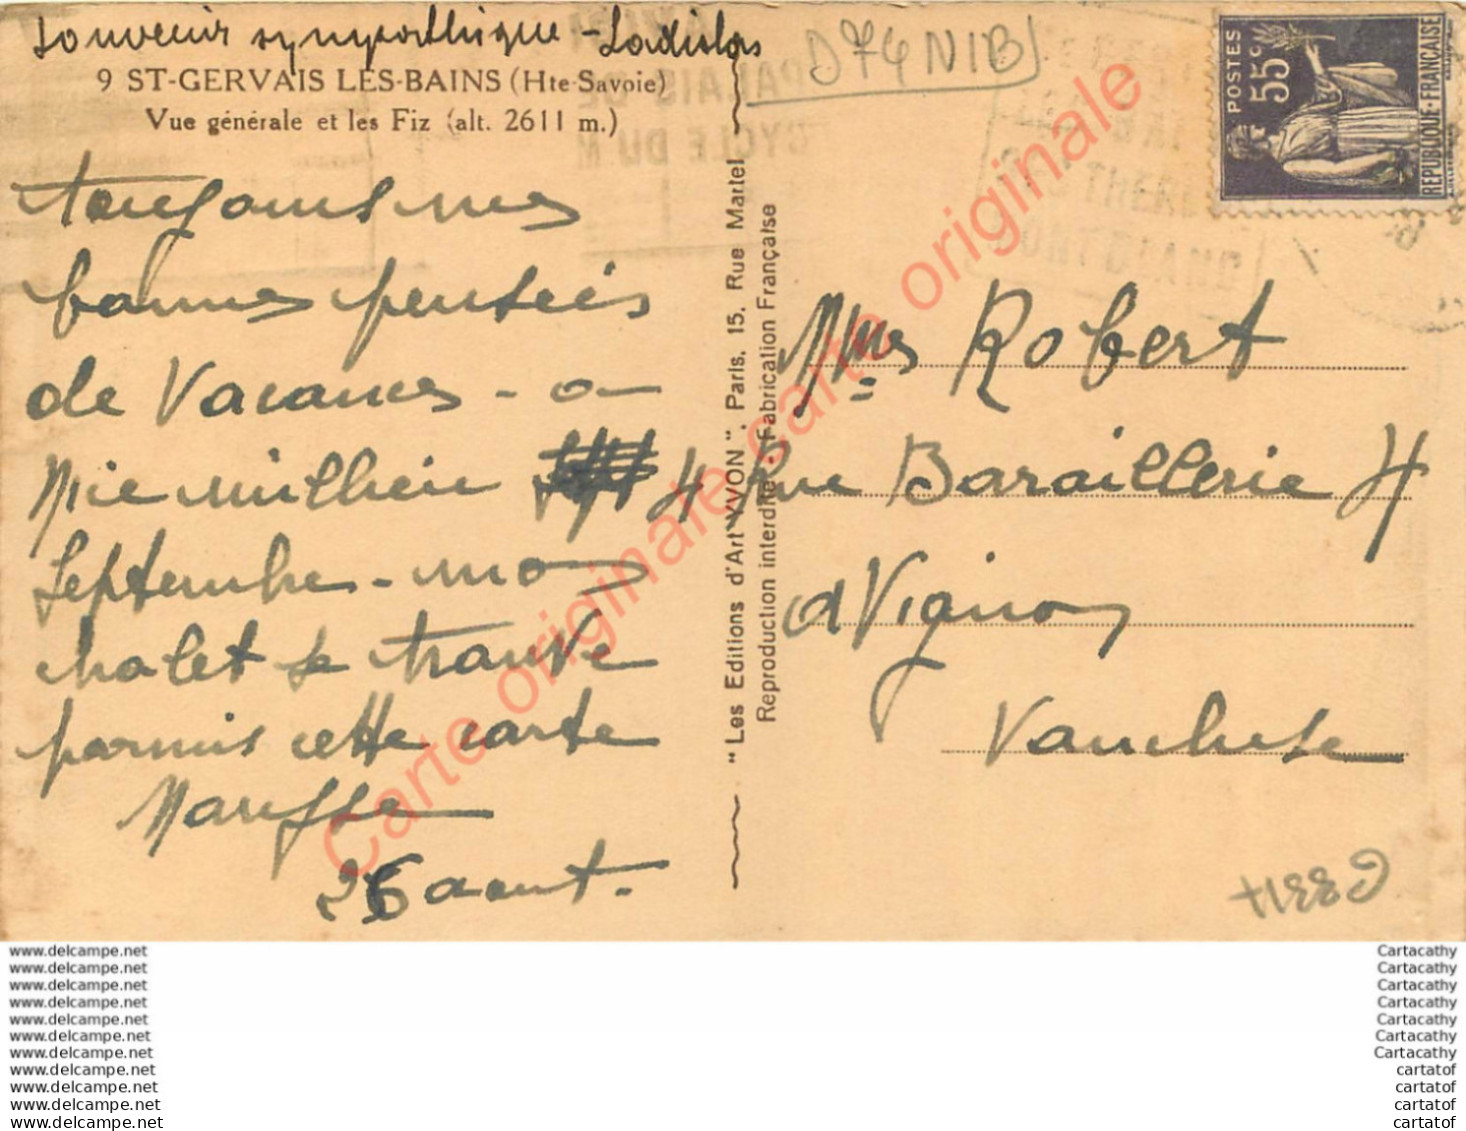 Souvenir sympathique - Ladislas
9 ST-GERVAIS LES-BAINS (Hte-Savoie)
Vue générale et les Fiz (alt. 2611 m.)
toujours mes
bonnes pensées
de Vacances - on
4
Septembre - mon
chalet se trouve
parmis cette carte
26 aout.
"Les Editions d'Art YVON", Paris, 15, Rue Martel
Reproduction interdite - Fabrication Française
D74NIB
POSTES
55c
REPUBLIQUE-FRANÇAISE
PALAIS DE
CYCLE DU
Mmes Robert
Rue Baraillerie 4
aVignon
Vaucluse
Carte originale carte originale
www.delcampe.net
www.delcampe.net
www.delcampe.net
www.delcampe.net
www.delcampe.net
www.delcampe.net
www.delcampe.net
www.delcampe.net
www.delcampe.net
www.delcampe.net
www.delcampe.net
Cartacathy
Cartacathy
Cartacathy
Cartacathy
Cartacathy
Cartacathy
Cartacathy
cartatof
cartatof
cartatof
cartatof